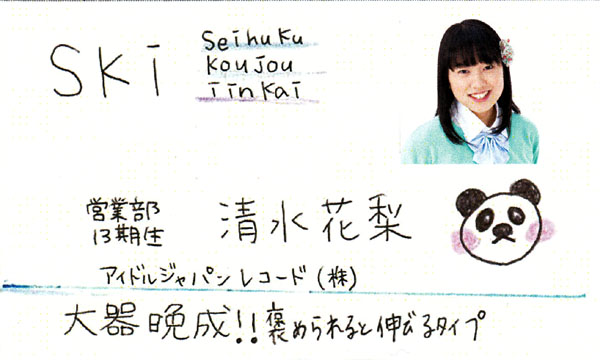 SKi
Seihuku
Koujou
iinkai
営業部
13期生
清水花梨
アイドルジャパンレコード(株)
大器晩成!!褒められると伸びるタイプ